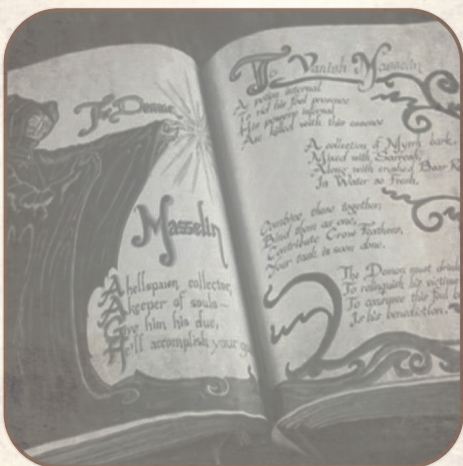 The Demon
Masselin
A hellspawn collector,
A keeper of souls~
Give him his due,
He'll accomplish your
To Vanish Masselin
A potion internal
To rid his foul presence
His powers infernal
Are killed with this essence
A collection of Myrrh bark,
Mixed with
Along with crushed Bear
In Water so Fresh.
Combine these together;
Bind them as one,
Contribute Crow Feathers,
Your task is soon done.
The Demon must drink
To relinquish his victims
To conquer this foul
Is his benediction.